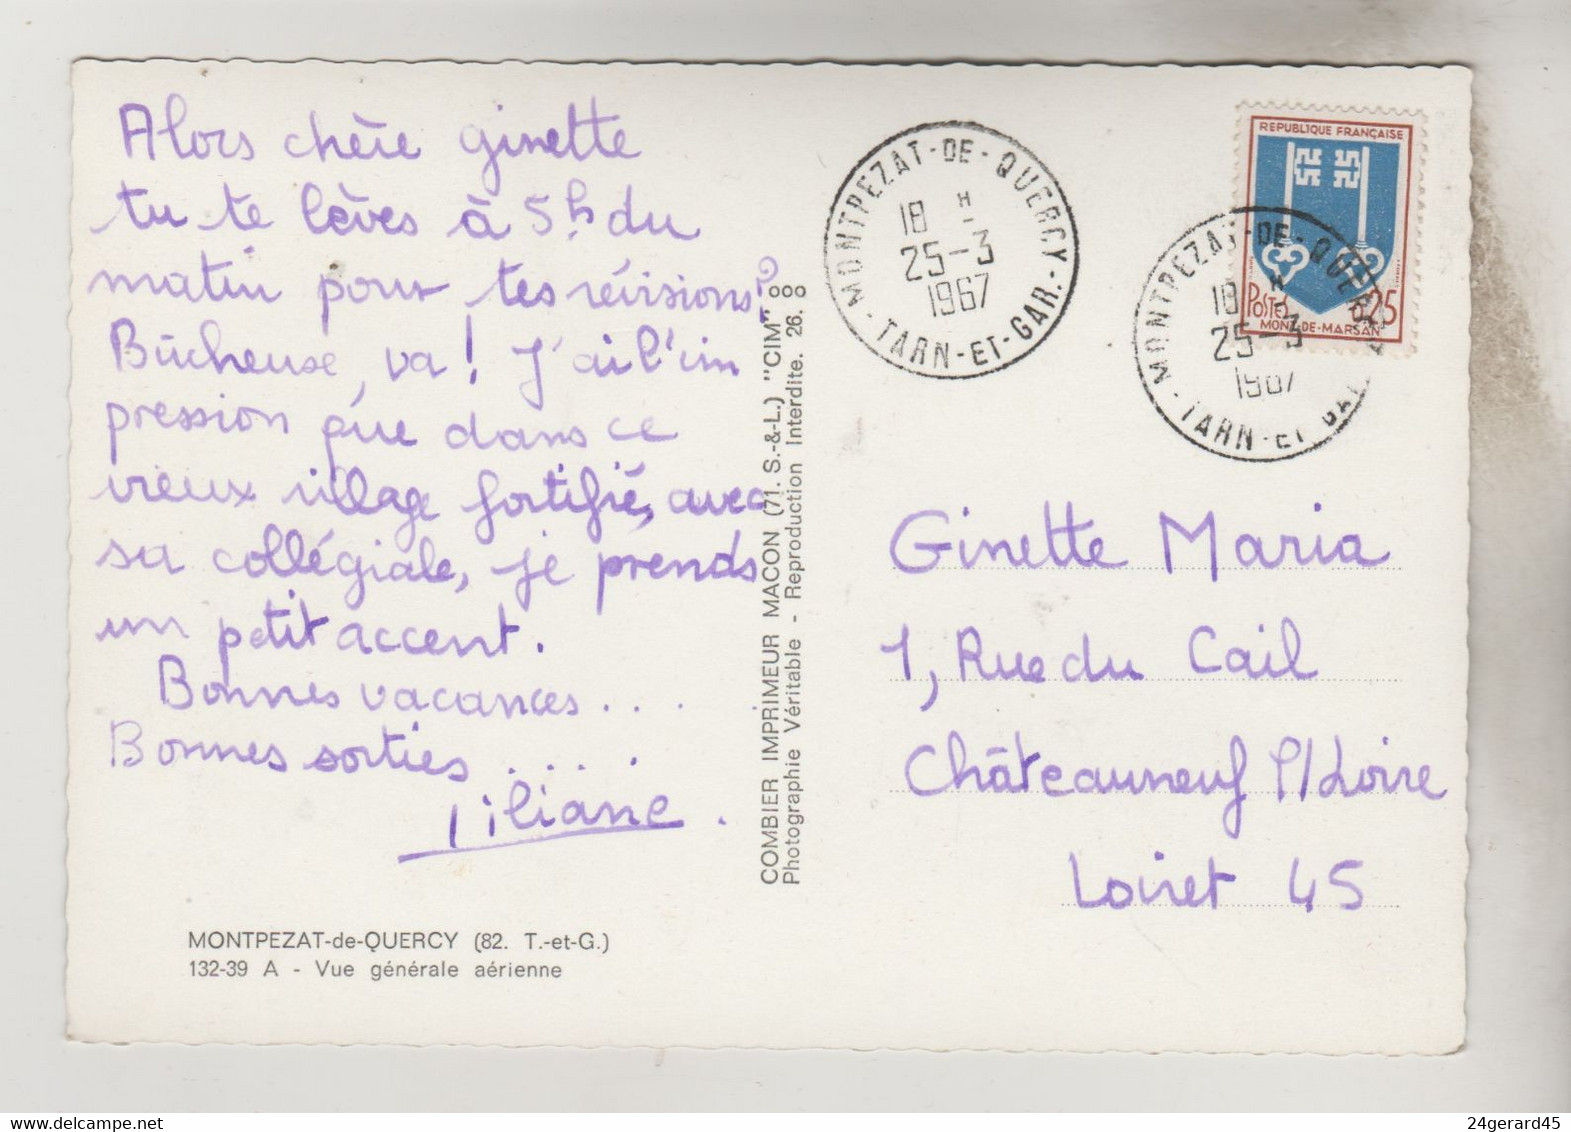 Alors chère ginette
tu te lèves à 5h du
matin pour tes révisions?
Bûcheuse, va! J'ai l'im
pression que dans ce
vieux village fortifié, avec
sa collégiale, je prends
un petit accent.
Bonnes vacances . . .
Bonnes sorties . . . .
Liliane.
MONTPEZAT-de-QUERCY (82. T.-et-G.)
132-39 A - Vue générale aérienne
COMBIER IMPRIMEUR MACON (71. S.-&-L.) "CIM"
Photographie Véritable - Reproduction Interdite. 26.
MONTPEZAT-DE-QUERCY
18 H
25-3
1967
- TARN-ET-GAR. -
REPUBLIQUE FRANÇAISE
POSTES 0,25
MONT-DE-MARSAN
MONTPEZAT-DE-QUERCY
18 H
25-3
1967
- TARN-ET-GAR.
Ginette Maria
1, Rue du Cail
Châteauneuf S/Loire
Loiret 45
24gerard45